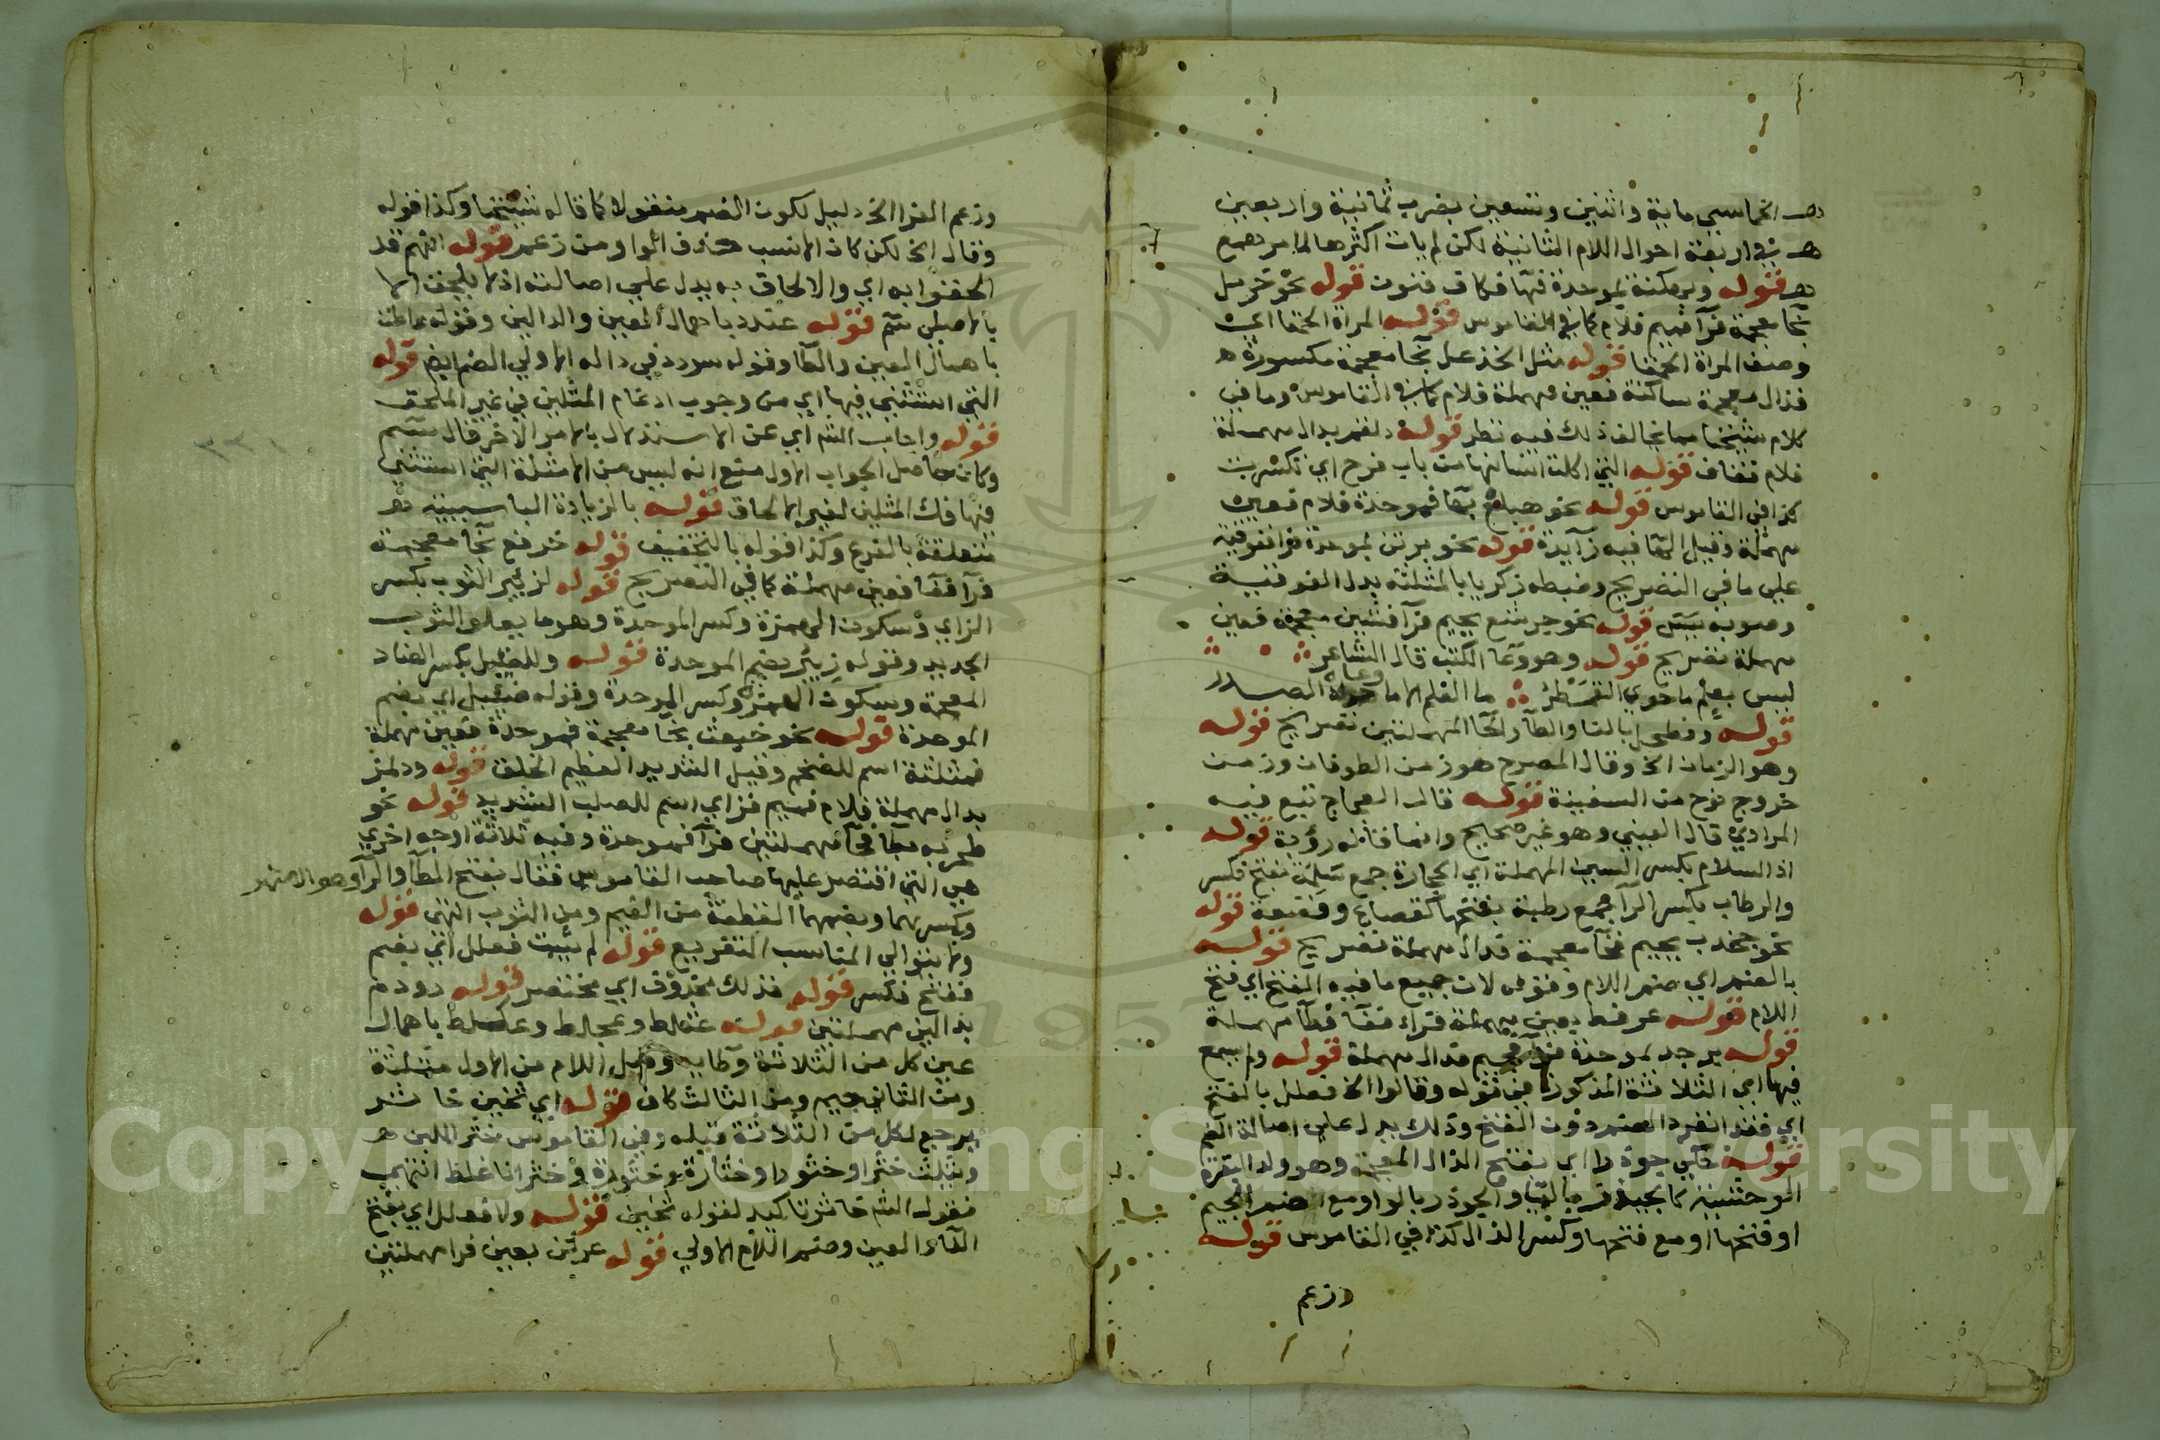 الخماسي مائة واثنين وتسعين بضرب ثمانية واربعين
في اربعة احوال اللام الثانية لكن لم يات اكثرها
قوله نحو خرمل قوله فنون
فرآ فميم فلام كما في القاموس قوله المراة الحمقا اي
وصف المراة الحمقا قوله مثل الخذعل بخا معجمة مكسورة
فذال معجمة ساكنة فعين مهملة فلام كما في القاموس وما في
كلام شيخنا مما يخالف ذلك فيه نظر قوله دلقم بدال مهملة
فلام فقاف قوله التي اكلت اسنانها من باب فرح اي تكسرت
كذا في القاموس قوله نحو هبلع بها فموحدة فلام فعين
مهملة وقيل الها فيه زآيدة قوله نحو برتن بموحدة فرا ففوقية
علي ما في التصريح وضبطه زكريا بالمثلثه بدل الفوقية
وصوبه قوله نحو جرشع بجيم فرآ فشين معجمة فعين
مهملة تصريح قوله وهو وعا الكتب قال الشاعر
ليس بعلم ما حوي القمطر ما العلم الا ما وعاه الصدر
قوله وفطحل بالفا والطآ والحا المهملتين تصريح قوله
وهو الزمان الخ وقال المصرح هو زمن الطوفان وزمن
خروج نوح من السفينة قوله قال العجاج تبع فيه
المرادي قال العيني وهو غير صحيح وانما قائله رؤبة قوله
اذ السلام بكسر السين المهملة اي الحجارة جمع سلمة بفتح فكسر
والرطاب بكسر الرآ جمع رطبة بفتحها كقصاع وقصعة قوله
نحو جخدب بجيم فخآ معجمة فدال مهملة تصريح قوله
بالضم اي ضم اللام وقوله لان جميع ما فيه الفتح اي فتح
اللام قوله عرفط بعين مهملة فراء ففآ فطآ مهملة
قوله برجد بموحدة فرآ فجيم فدال مهملة قوله ولم يسمع
فيها اي الثلاثة المذكورة في قوله وقالوا الخ فعلل بالفتح
اي فقد انفرد الضم دون الفتح وذلك يدل علي اصالة الضم
قوله جوذرا اي بفتح الذال المعجمة وهو ولد البقرة
الوحشية والجوذر بالواو مع ضم الجيم
او فتحها او مع فتحها وكسر الذال كذا في القاموس قوله
وزعم
وزعم الفرا الخ دليل لكون الضم منقولا كما قاله شيخنا وكذا قوله
وقال الخ لكن كان الانسب حذف الواو من زعم قوله انهم قد
الحقوا به اي والالحاق به يدل علي اصالته اذ لا يلحق الا
بالاصلي سم قوله عندد باهمال العين والدالين وقوله عاطت
باهمال العين والطآ وقوله سودد في داله الاولي الضم ايضا قوله
التي استثني فيها اي من وجوب ادغام المثلين في غير الملحق
قوله واجاب الش اي عن الاستدلال بالامر الاخر قال سم
وكان حاصل الجواب الاول منع انه ليس من الامثلة التي استثني
فيها فك المثلين لغير الالحاق قوله بالزيادة البا سببية
متعلقة بالفرع وكذا قوله بالتخفيف قوله خرفع بخآ معجمة
فرآ ففآ فعين مهملة كما في التصريح قوله لزئبر الثوب بكسر
الزاي وسكون الهمزة وكسر الموحدة وهو ما يعلو الثوب
الجديد وقوله زئبر بضم الموحدة قوله وللضئبل بكسر الضاد
المعجمة وسكون الهمزة وكسر الموحدة وقوله ضئبل اي بضم
الموحدة قوله نحو خبعث بخآ معجمة فموحدة فعين مهملة
فمثلثة اسم للضخم وقيل الشديد العظيم الخلق قوله ودلمز
بدال مهملة فلام فميم فزاي اسم للصلب الشديد قوله نحو
طحربه بطآ فحآ مهملتين فرآ فموحدة وفيه ثلاثة اوجه اخري
هي التي اقتصر عليها صاحب القاموس فقال بفتح الطآ والرآ
وكسرهما وبضمهما القطعة من الغيم ومن الثوب انتهي قوله
ولا يتوالي المناسب التفريع قوله لم يثبت فعلل اي بضم
ففتح فكسر قوله فذلك اي مختصر قوله دودم
بدالين مهملتين قوله عثلط وعجلط وعكلط باهمال
عين كل من الثلاثة وطايه وقبل اللام من الاول مثلثة
ومن الثاني جيم ومن الثالث كاف قوله اي ثخين خاثر
يرجع لكل من الثلاثة قبله وفي القاموس خثر اللبن
ويثلث خثرا وخثورا وخثارة وخثورة وخثرانا غلظ انتهي
فقول الش خاثر تاكيد لقوله ثخين قوله ولا فعلل اي بفتح
الفآء والعين وضم اللام الاولي قوله عرتن بعين فرا مهملتين